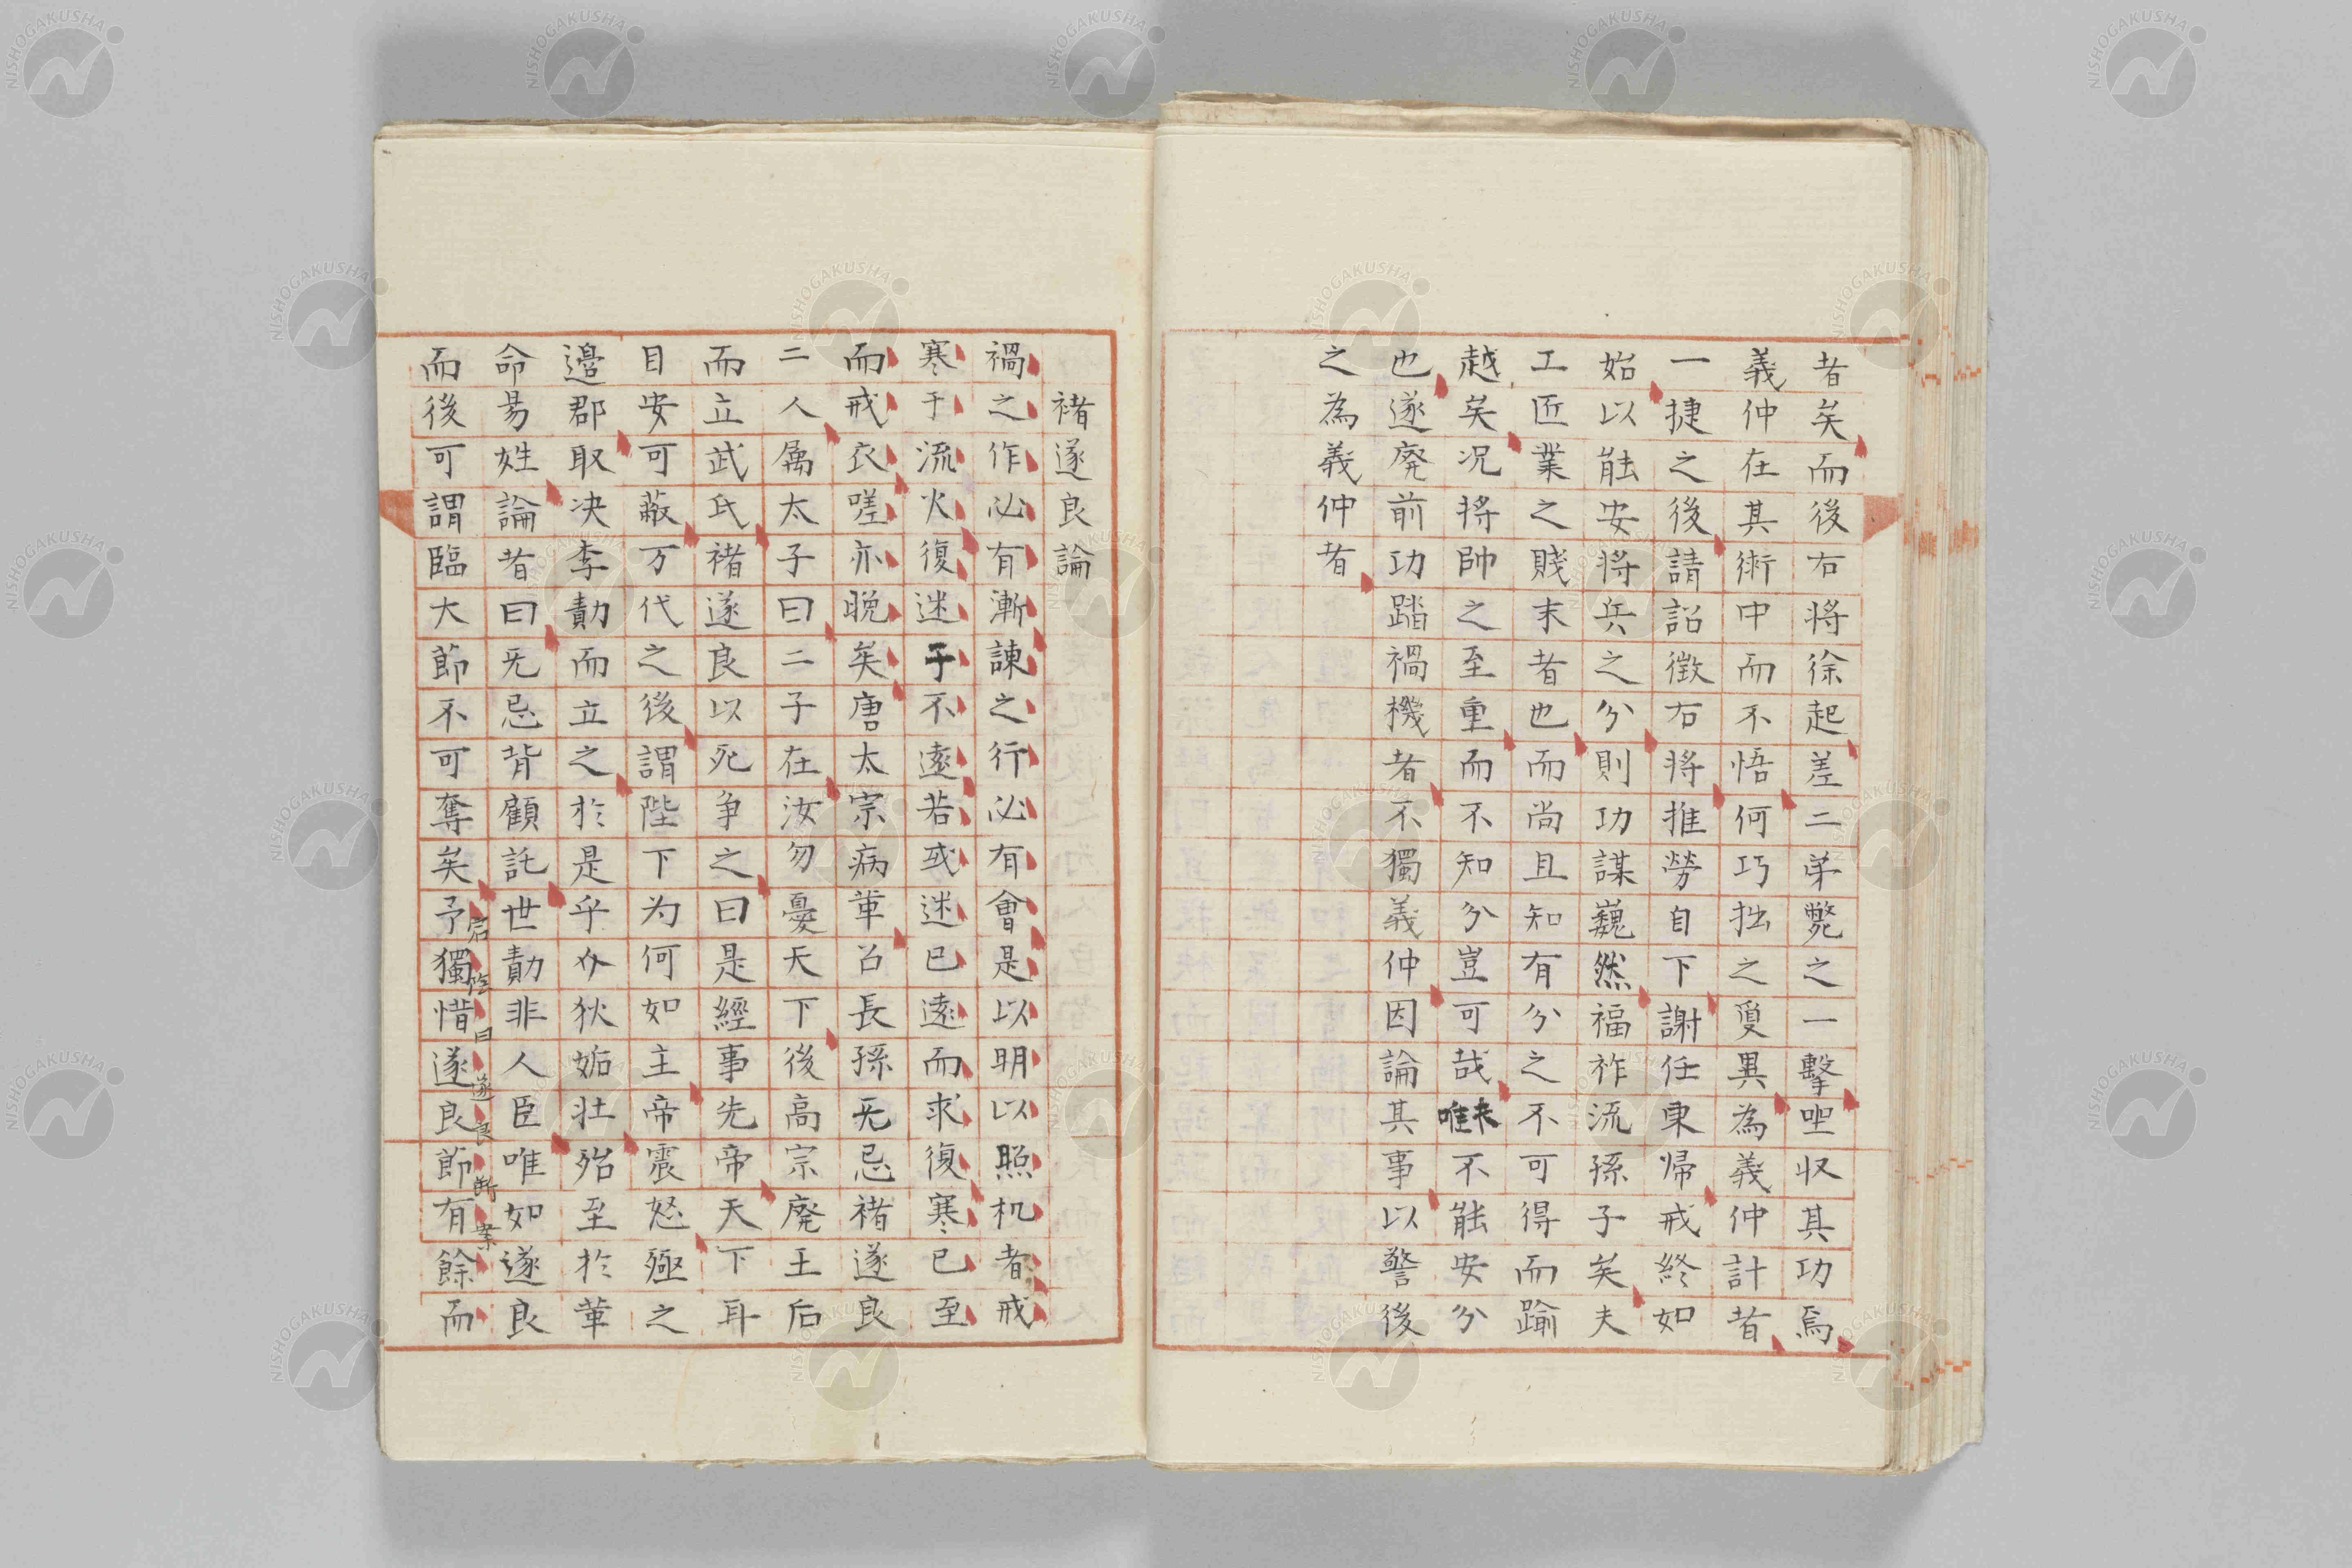 者矣而後右将徐起差二弟斃之一擊坐収其功焉
義仲在其術中而不悟何巧拙之夐異為義仲計者
一捷之後請詔徴右将推勞自下謝任東帰戒終如
始以能安将兵之分則功謀巍然福祚流孫子矣夫
工匠業之賤末者也而尚且知有分之不可得而踰
越矣况将帥之至重而不知分豈可哉唯夫不能安分
也遂廃前功踏禍機者不獨義仲因論其事以警後
之為義仲者
褚遂良論
禍之作必有漸諌之行必有會是以明以照机者戒
寒于流火復迷于不遠若或迷已遠而求復寒已至
而戒衣嗟亦晩矣唐太宗病革召長孫无忌褚遂良
二人属太子曰二子在汝勿憂天下後高宗廃王后
而立武氏褚遂良以死争之曰是經事先帝天下耳
目安可蔽万代之後謂陛下为何如主帝震怒殛之
邉郡取决李勣而立之於是乎介狄姤壮殆至於革
命昜姓論者曰无忌背顧託世勣非人臣唯如遂良
而後可謂臨大節不可奪矣予獨惜遂良節有餘而
曰遂良断案
NISHOGAKUSHA